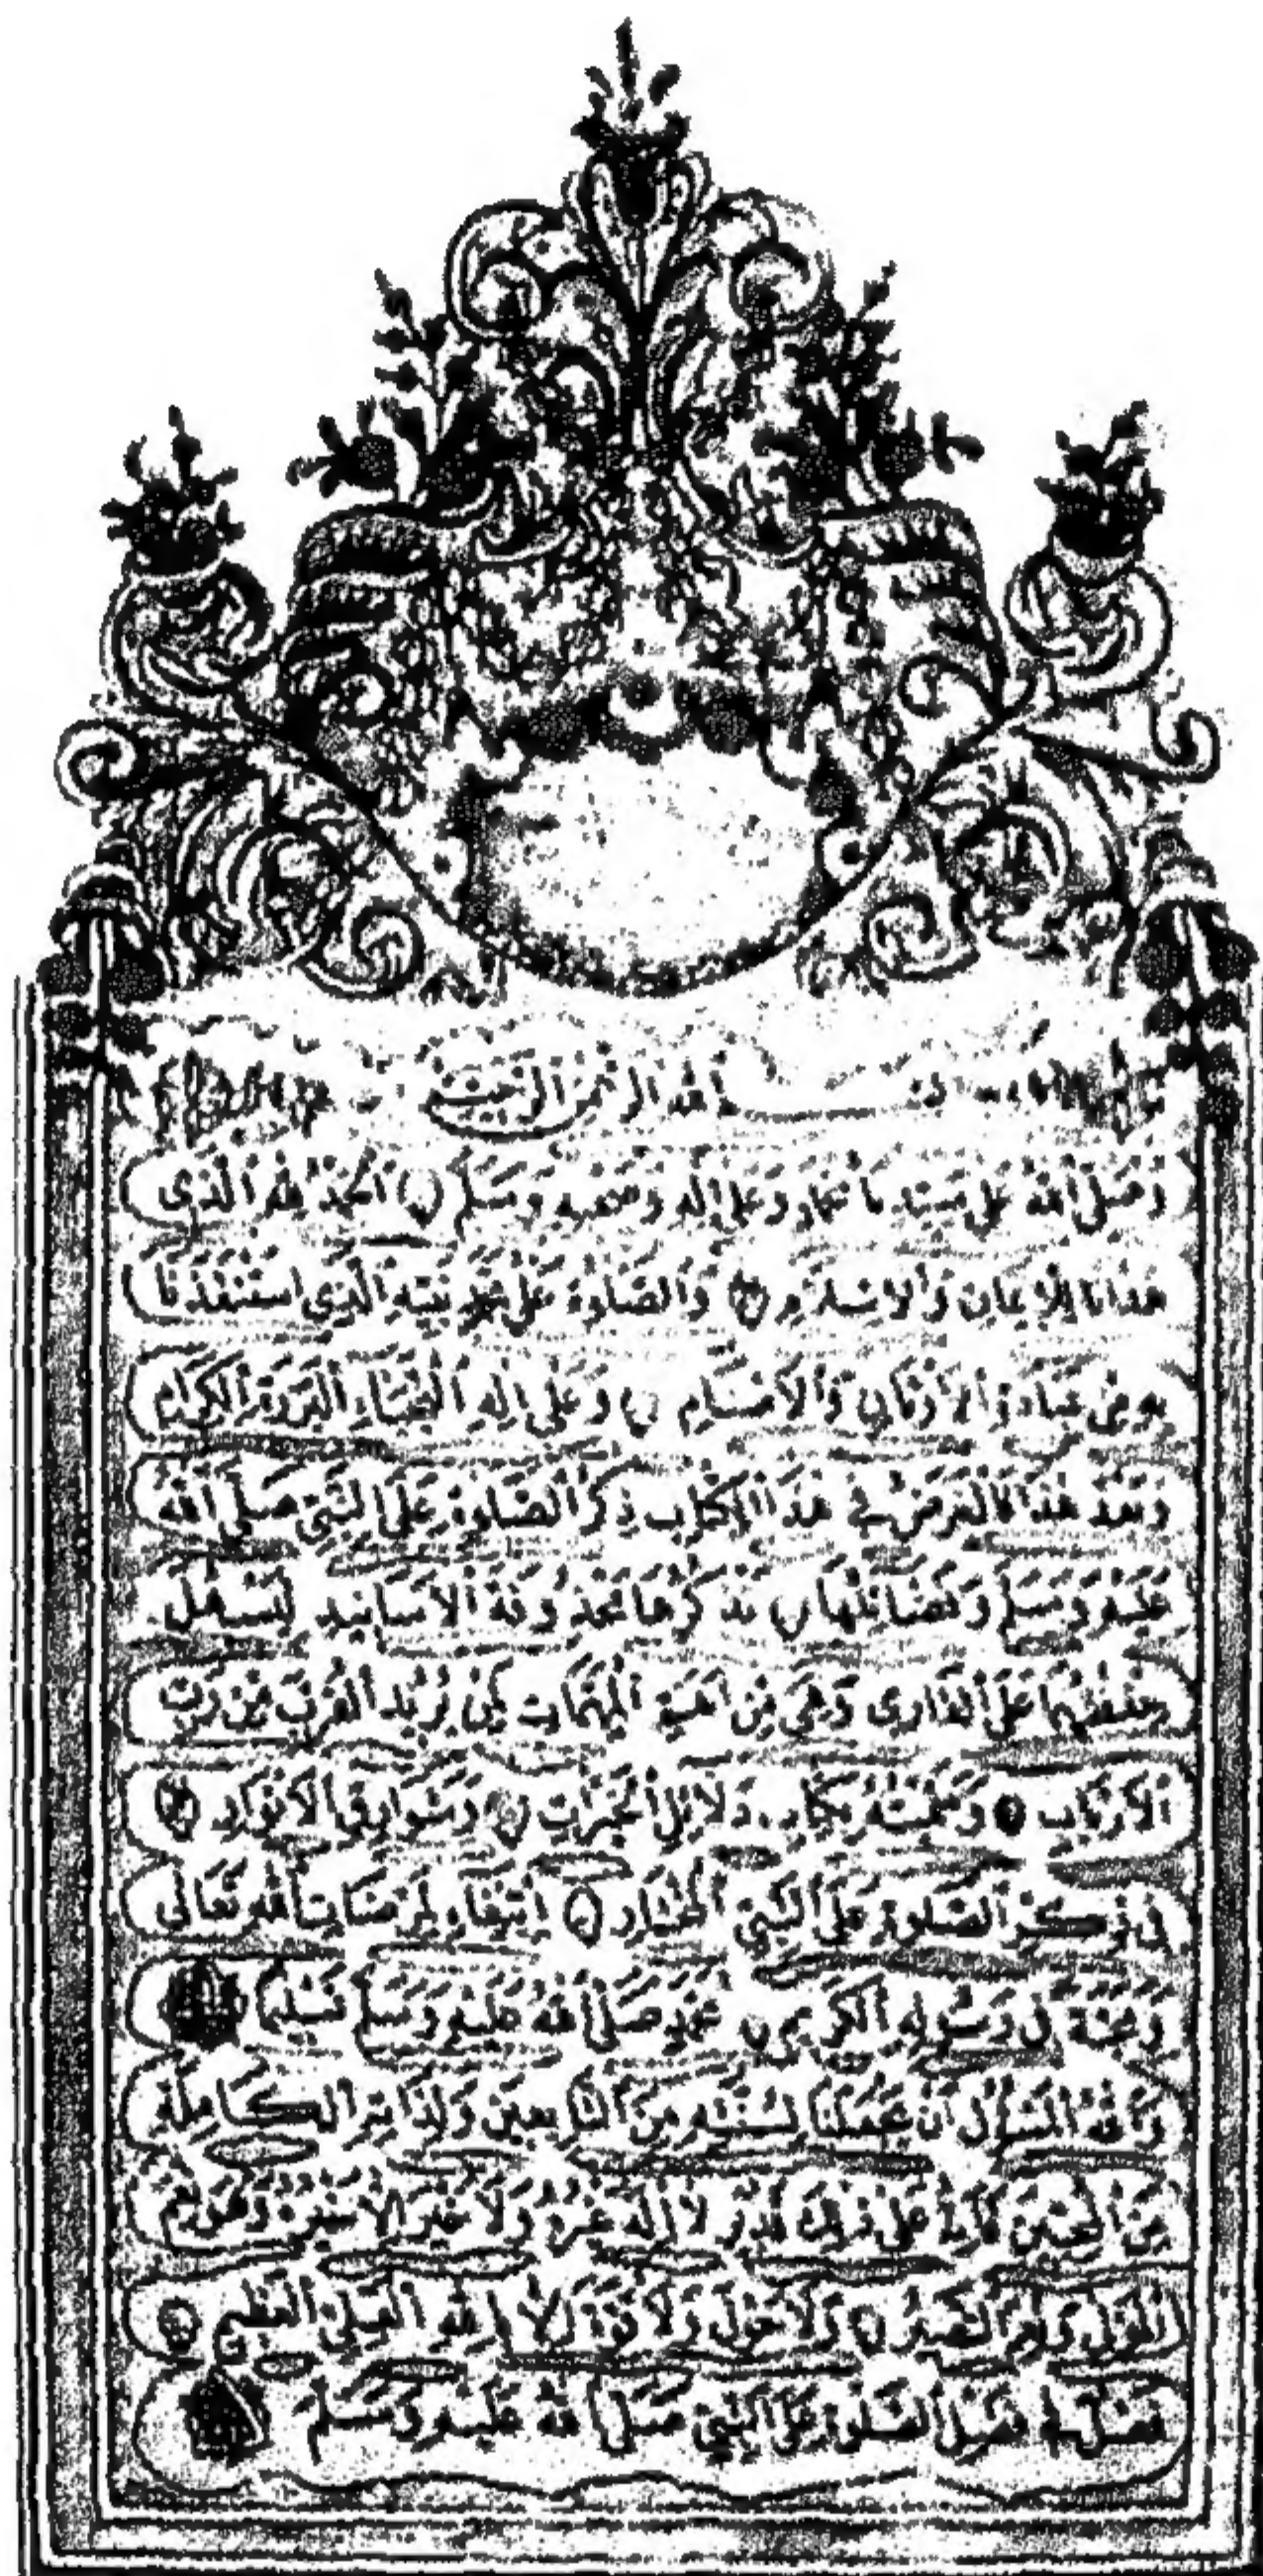 بسم الله الرحمن الرحيم
وَصَلَّى اللهُ عَلَى سَيِّدِنَا مُحَمَّدٍ وَعَلَى الِهِ وَصَحْبِهِ وَسَلَّمَ اَلْحَمْدُ لِلهِ الَّذِى
هَدَانَا لِلْاِيمَانِ وَالْاِسْلَامِ وَالصَّلٰوةُ عَلَى مُحَمَّدٍ نَبِيِّهِ الَّذِى اسْتَنْقَذَنَا
بِهِ مِنْ عِبَادَةِ الْاَوْثَانِ وَالْاَصْنَامِ وَعَلَى الِهِ النُّجَبَاءِ الْبَرَرَةِ الْكِرَامِ
وَبَعْدَ هَذَا فَالْغَرَضُ فِى هَذَا الْكِتَابِ ذِكْرُ الصَّلٰوةِ عَلَى النَّبِىِّ صَلَّى اللهُ
عَلَيْهِ وَسَلَّمَ وَفَضَائِلِهَا نَذْكُرُهَا مَحْذُوفَةَ الْاَسَانِيدِ لِيَسْهُلَ
حِفْظُهَا عَلَى الْقَارِى وَهِىَ مِنْ اَهَمِّ الْمُهِمَّاتِ لِمَنْ يُرِيدُ الْقُرْبَ مِنْ رَبِّ
الْاَرْبَابِ وَسَمَّيْتُهُ بِكِتَابِ دَلَائِلِ الْخَيْرَاتِ وَشَوَارِقِ الْاَنْوَارِ
فِى ذِكْرِ الصَّلٰوةِ عَلَى النَّبِىِّ الْمُخْتَارِ اِبْتِغَاءً لِمَرْضَاتِ اللهِ تَعَالَى
وَمَحَبَّةً فِى رَسُولِهِ الْكَرِيمِ مُحَمَّدٍ صَلَّى اللهُ عَلَيْهِ وَسَلَّمَ تَسْلِيمًا
وَاللهُ الْمَسْؤُلُ اَنْ يَجْعَلَنَا لِسُنَّتِهِ مِنَ التَّابِعِينَ وَلِذَاتِهِ الْكَامِلَةِ
مِنَ الْمُحِبِّينَ فَاِنَّهُ عَلَى ذٰلِكَ قَدِيرٌ لَا اِلٰهَ غَيْرُهُ وَلَا خَيْرَ اِلَّا خَيْرُهُ وَهُوَ نِعْمَ
الْمَوْلَى وَنِعْمَ النَّصِيرُ وَلَا حَوْلَ وَلَا قُوَّةَ اِلَّا بِاللهِ الْعَلِىِّ الْعَظِيمِ
فَصْلٌ فِى فَضْلِ الصَّلٰوةِ عَلَى النَّبِىِّ صَلَّى اللهُ عَلَيْهِ وَسَلَّمَ